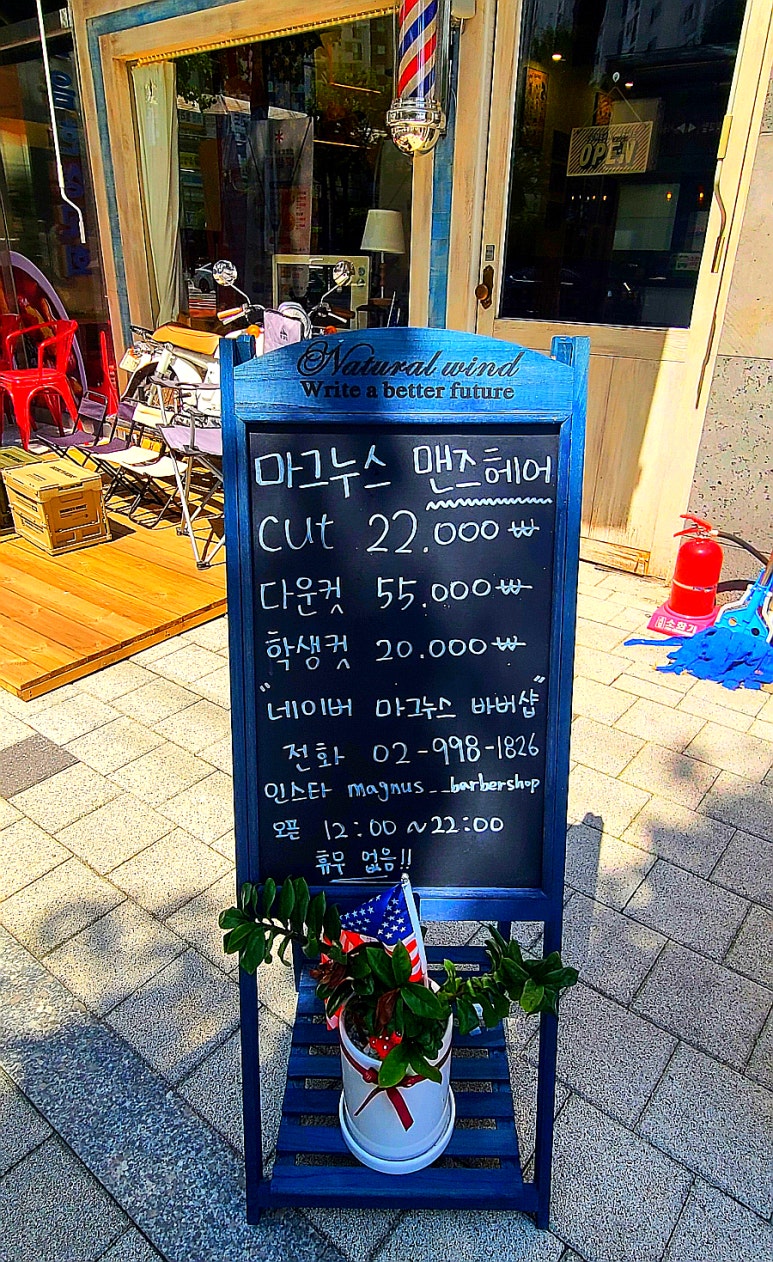 OPEN
Natural wind
Write a better future
마그누스 맨즈헤어
cut 22.000 ₩
다운컷 55.000 ₩
학생컷 20.000 ₩
"네이버 마그누스 바버샵"
전화 02-998-1826
인스타 magnus__barbershop
오픈 12:00~22:00
휴무 없음!!
소화기